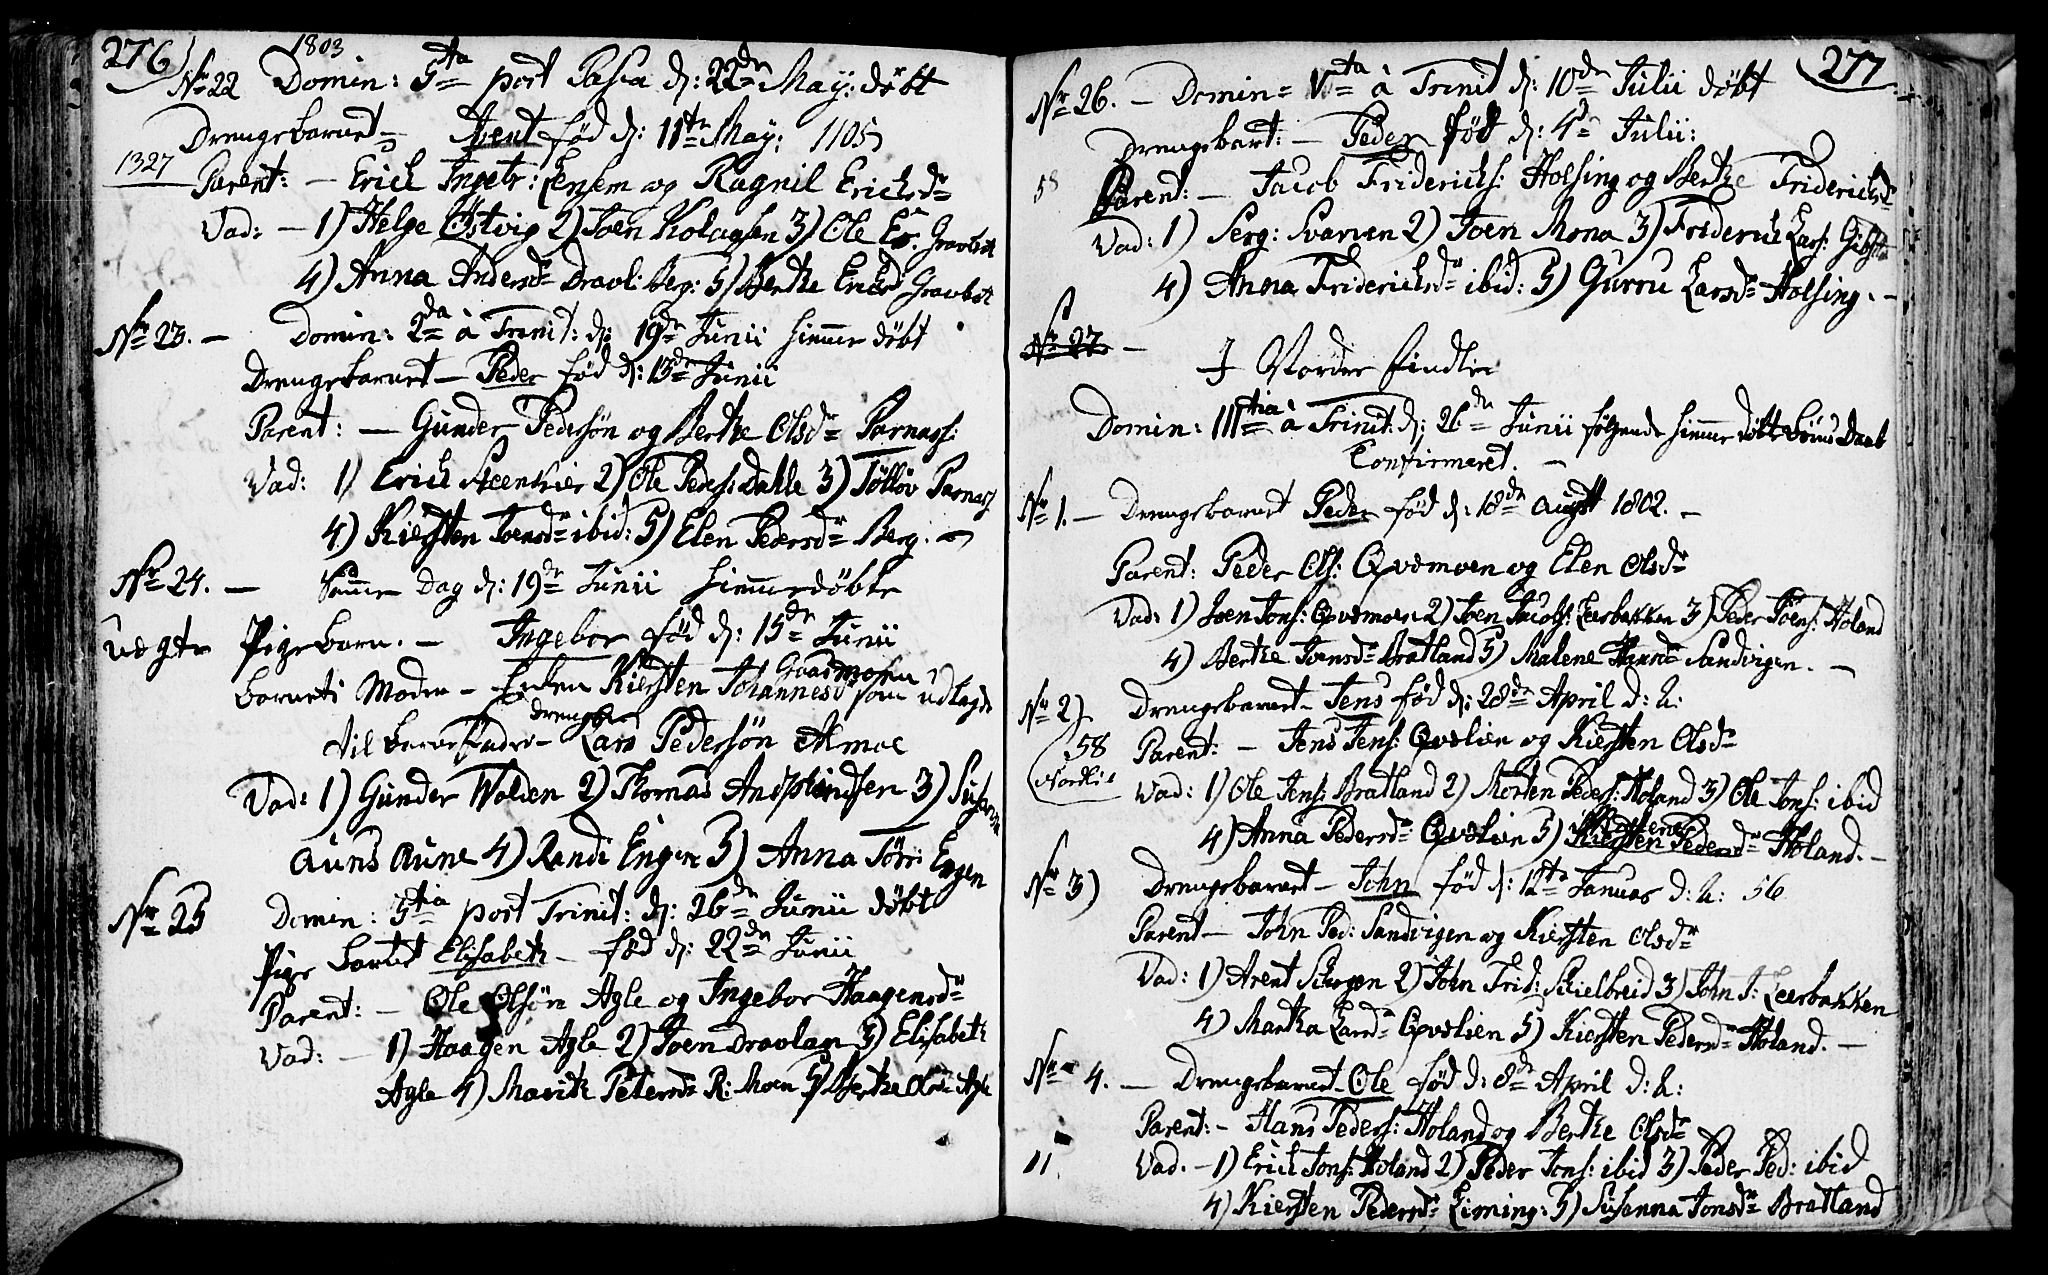 276
1803
Nr 22 Domin: 5ta post Pasca d: 22de May: døbt
Drengebarnet – Arent fød d: 11te May: 1105
1327
Parent: – Erich Ingebr: Lensem og Ragnil Erichsdr
Vad: – 1) Helge Østvig 2) Joen Kolaasen 3) Ole Er: Gravbrøt
4) Anna Andersdr Dravl: Berg: 5) Berthe Erichsd Gravbrøt
Nr 23. – Domin: 2da à Trinit: d: 19de Junii himmedøbt
Drengebarnet – Peder fød d: 13de Junii
Parent: – Gunder Pedersøn og Berthe Olsdr Parnass:
Vad: 1) Erich Steenkier 2) Ole Peders: Dahle 3) Tølløv Parnass
4) Kiersten Joensdr ibid: 5) Elen Pedersdr Berg. –
Nr 24. – Samme Dag d: 19de Junii himmedøbte
uegte Pigebarn. – Ingebor fød d: 15de Junii
Barnets Moder – Enken Kiersten Johannesd Graasmoen som udlagde
til barnefader – drengen Lars Pedersøn Almoe
Vad: 1) Gunder Wolden 2) Thomas 3)
Auns Aune 4) Randi Engen 5) Anna Engen
Nr 25 Domin: 3tia post Trinit: d: 26de Junii døbt
Pige barnet Elisabeth – fød d: 22de Junii
Parent: – Ole Olsøn Agle og Ingebor Haagensdr
Vad: – 1) Haagen Agle 2) Joen Dravlan 3) Elisabeth
Agle 4) Marith Petersdr R: Moen 5) Berthe Agle
277
Nr 26. – Domin= Vta à Trinit d: 10de Julii døbt
Drengebart: – Peder fød d: 4de Julii:
58 Parent: – Jacob Friderichs: Holsing og Berthe Friderichsdr
Vad: 1) Serg: Svarven 2) Joen Mona 3) Frederich Lars:
4) Anna Friderichsdr ibid: 5) Gurru Larsdr Holsing. –
Nr 27 –
Nordre Findlie
Domin: IIItia à Trinit: d: 26de Junii følgende himmedøbte børns Daab
Confirmeret. –
Nr 1. – Drengebarnet Peder fød d: 18de August 1802. –
Parent: Peder Ols: Qvemoen og Elen Olsdr
Vad: 1) Joen Jons: Qvemoen 2) Joen Jacobs: Leerbakken 3) Peder Joens: Holand
4) Berthe Joensdr Bratland 5) Malene Hansdr Sandvigen. –
Nr 2) Drengebarnet – Jens fød d: 28de April d: A:
58 Parent: – Jens Jens: Qvelien og Kiersten Olsdr
Nordlie Vad: 1) Ole Jens: Bratland 2) Morten Peders: Holand 3) Ole Jons: ibid
4) Anna Pedersdr Qvelien 5) Kiersten Pedersdr Holand. –
Nr 3) Drengebarnet – John fød d: 12te Januar d: A: 56
Parent – John Ped: Sandvigen og Kiersten Olsdr
Vad: 1) Arent 2) John Frid: Skielbreid 3) John J: Leerbakken
4) Martha Larsdr Qvelien 5) Kiersten Pedersdr Holand. –
Nr 4. – Drengebarnet – Ole fød d: 8de April d: A:
Parent: – Hans Peders: Holand og Berthe Olsdr
11 Vad. – 1) Erich Jons: Holand 2) Peder Jons: ibid 3) Peder Ped: ibid
4) Kiersten Pedersdr Liming: 5) Susanna Jonsdr Bratland